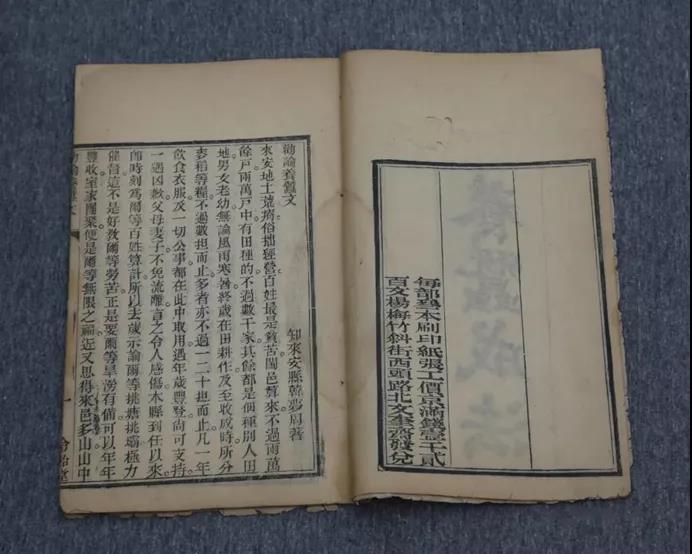 每部　本刷印紙張工價京滿錢壹千貳
百文楊梅竹斜街西頭路北文奎齋發兌
勸諭養蠶文
知來安縣韓夢周著
來安地土墝瘠俗拙經營百姓最是貧苦闔邑算來不過兩萬
餘戶兩萬戶中有田種的不過數千家其餘都是個種別人田
地男女老幼無論風雨寒暑終歲在田耕作及至收成時所分
麥稻等糧不過數担而止多者亦不過一二十担而止凡一年
飲食衣服及一切公事都在此中取用遇年歲豐登尚可支持
一遇凶歉父母妻子不免流離言之令人感傷本縣到任以來
即時刻爲爾等百姓算計所以去歲示諭爾等挑塘挑壩極力
催督這不是好教爾等勞苦正是要爾等旱澇有備可以年年
豐收室家團聚便是爾等無限之福近又思得來邑多山山中